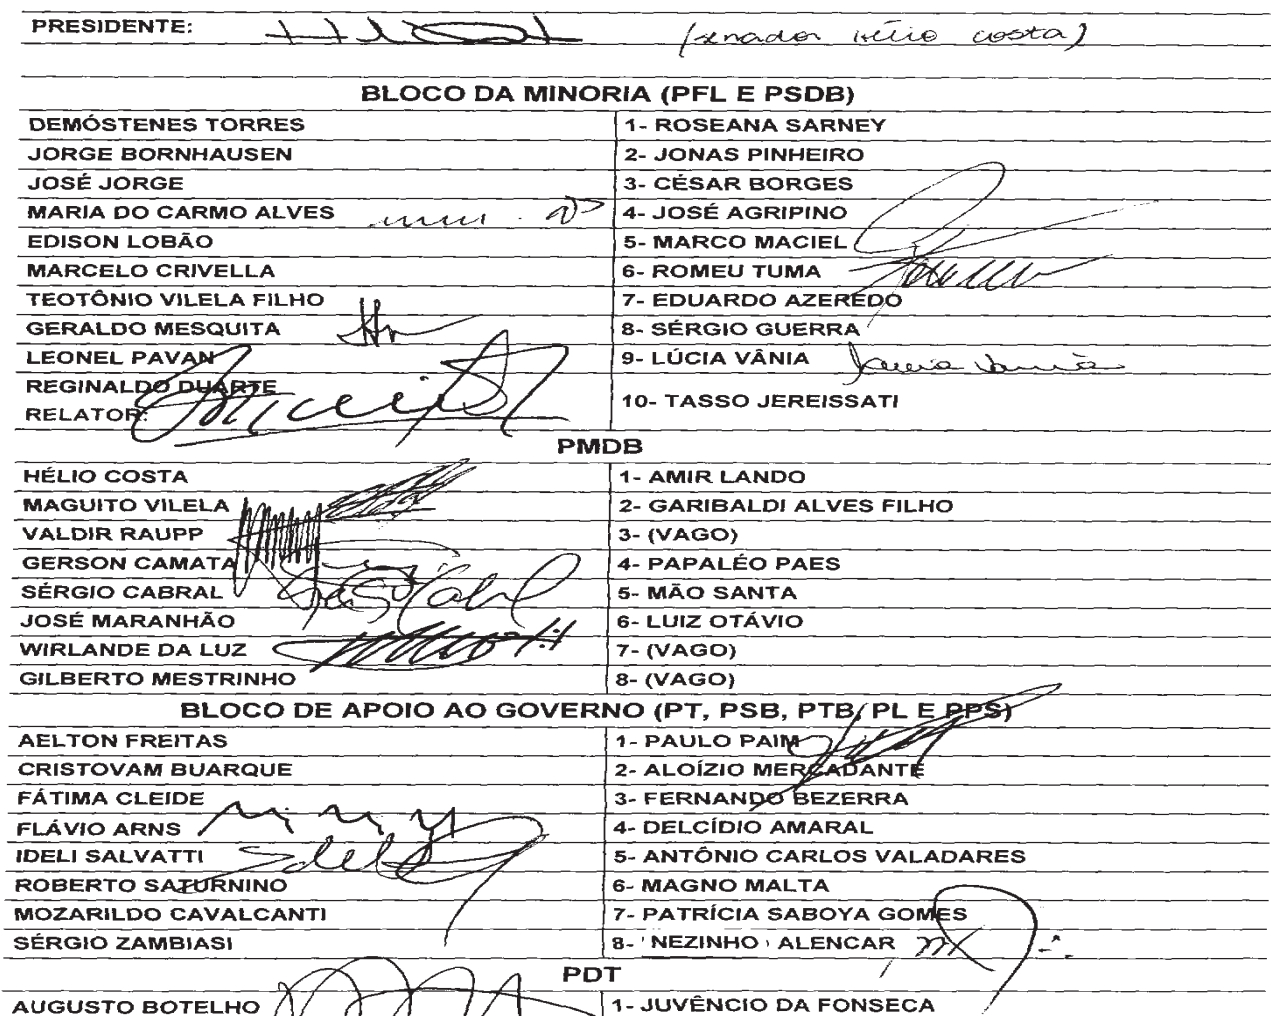 PRESIDENTE: (senador Hélio Costa)
BLOCO DA MINORIA (PFL E PSDB)
DEMÓSTENES TORRES 1- ROSEANA SARNEY
JORGE BORNHAUSEN 2- JONAS PINHEIRO
JOSÉ JORGE 3- CÉSAR BORGES
MARIA DO CARMO ALVES 4- JOSÉ AGRIPINO
EDISON LOBÃO 5- MARCO MACIEL
MARCELO CRIVELLA 6- ROMEU TUMA
TEOTÔNIO VILELA FILHO 7- EDUARDO AZEREDO
GERALDO MESQUITA 8- SÉRGIO GUERRA
LEONEL PAVAN 9- LÚCIA VÂNIA Lucia Vania
REGINALDO DUARTE
RELATOR: 10- TASSO JEREISSATI
PMDB
HÉLIO COSTA 1- AMIR LANDO
MAGUITO VILELA 2- GARIBALDI ALVES FILHO
VALDIR RAUPP 3- (VAGO)
GERSON CAMATA 4- PAPALÉO PAES
SÉRGIO CABRAL 5- MÃO SANTA
JOSÉ MARANHÃO 6- LUIZ OTÁVIO
WIRLANDE DA LUZ 7- (VAGO)
GILBERTO MESTRINHO 8- (VAGO)
BLOCO DE APOIO AO GOVERNO (PT, PSB, PTB, PL E PPS)
AELTON FREITAS 1- PAULO PAIM
CRISTOVAM BUARQUE 2- ALOÍZIO MERCADANTE
FÁTIMA CLEIDE 3- FERNANDO BEZERRA
FLÁVIO ARNS 4- DELCÍDIO AMARAL
IDELI SALVATTI 5- ANTÔNIO CARLOS VALADARES
ROBERTO SATURNINO 6- MAGNO MALTA
MOZARILDO CAVALCANTI 7- PATRÍCIA SABOYA GOMES
SÉRGIO ZAMBIASI 8- NEZINHO ALENCAR
PDT
AUGUSTO BOTELHO 1- JUVÊNCIO DA FONSECA